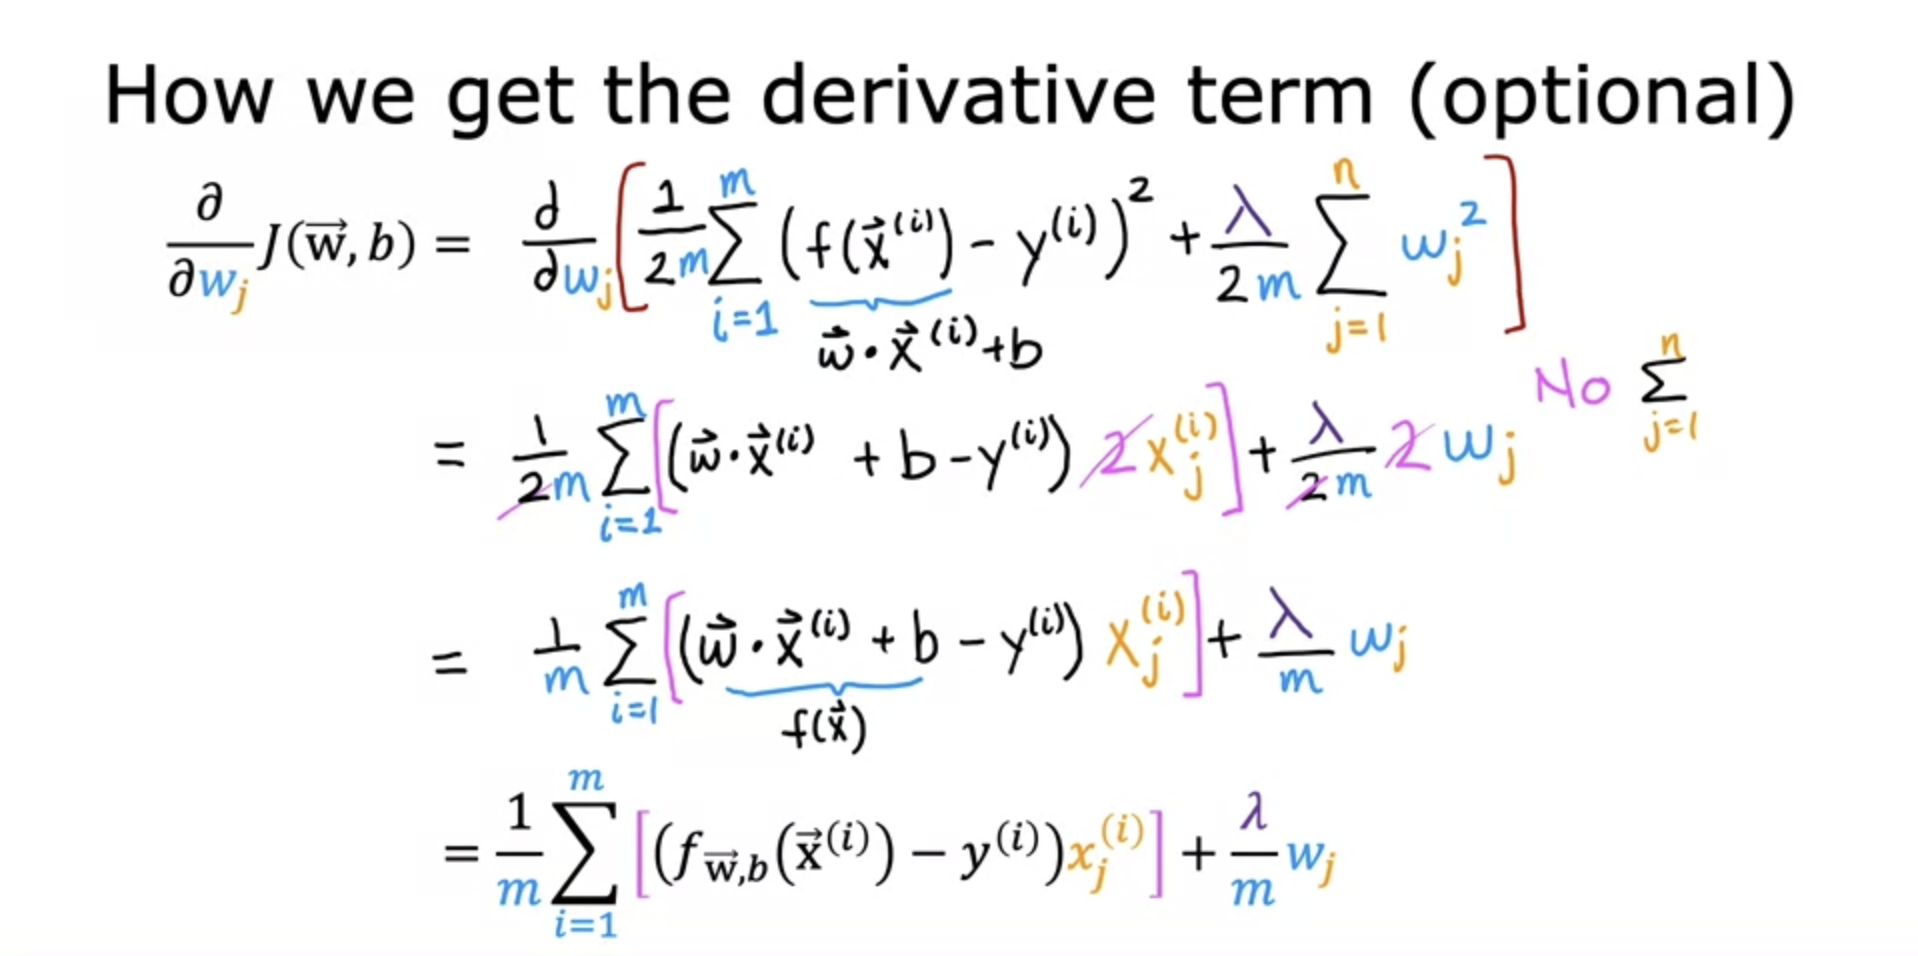 How we get the derivative term (optional)
∂/∂w_j J(w⃗, b) = ∂/∂w_j [ 1/2m ∑_{i=1}^{m} (f(x⃗^(i)) − y^(i))² + λ/2m ∑_{j=1}^{n} w_j² ]
w⃗ · x⃗^(i) + b
= 1/2m ∑_{i=1}^{m} [ (w⃗ · x⃗^(i) + b − y^(i)) 2 x_j^(i) ] + λ/2m 2 w_j No ∑_{j=1}^{n}
= 1/m ∑_{i=1}^{m} [ (w⃗ · x⃗^(i) + b − y^(i)) x_j^(i) ] + λ/m w_j
f(x⃗)
= 1/m ∑_{i=1}^{m} [ (f_{w⃗,b}(x⃗^(i)) − y^(i)) x_j^(i) ] + λ/m w_j